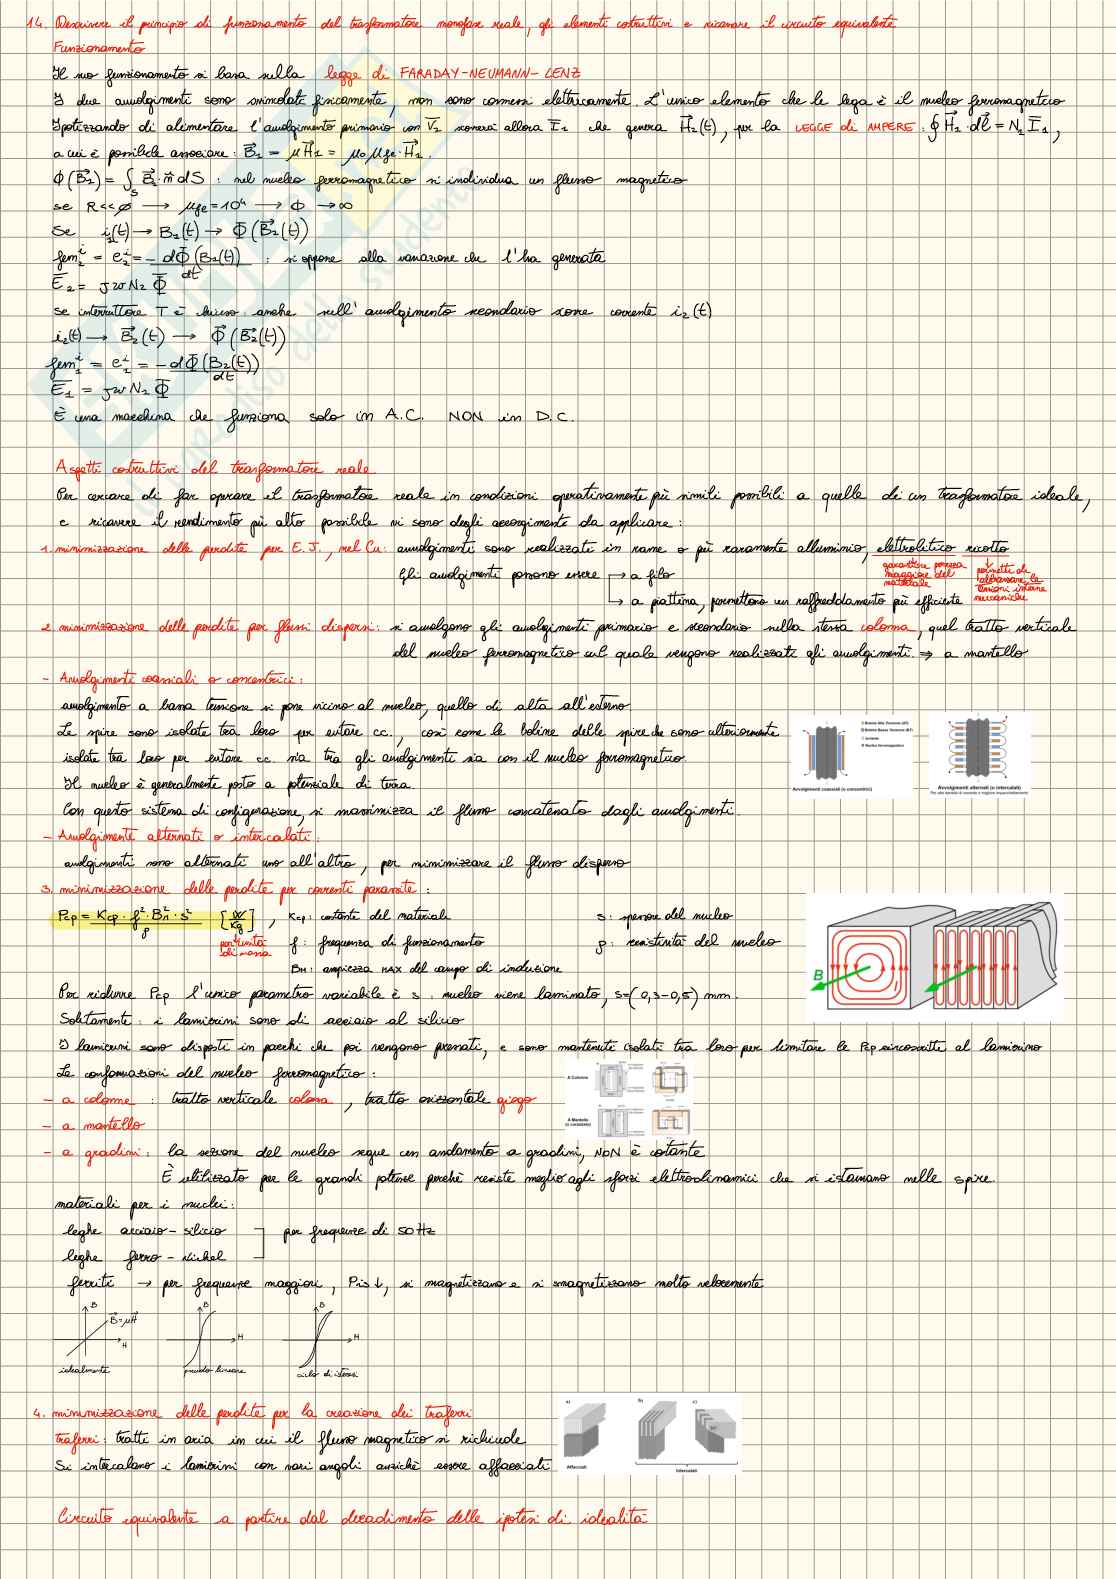 14. Descrivere il principio di funzionamento del trasformatore monofase reale, gli elementi costruttivi e ricavare il circuito equivalente
Funzionamento
Il suo funzionamento si basa sulla legge di FARADAY-NEUMANN-LENZ
I due avvolgimenti sono svincolati fisicamente, non sono connessi elettricamente. L'unico elemento che le lega è il nucleo ferromagnetico
Ipotizzando di alimentare l'avvolgimento primario con V̅₁ scorrerà allora I̅₁ che genera H⃗₁(t), per la LEGGE di AMPERE: ∮H⃗₁·dl⃗ = N₁I̅₁,
a cui è possibile associare: B⃗₁ = μH⃗₁ = μ₀μfe·H⃗₁.
Φ(B⃗₁) = ∫ₛ B⃗₁·n⃗ dS : nel nucleo ferromagnetico si individua un flusso magnetico
se R<<∅ → μfe=10⁴ → Φ → ∞
Se i₁(t) → B₁(t) → Φ(B⃗₁(t))
fem₂ⁱ = e₂ⁱ = - dΦ(B₁(t))/dt : si oppone alla variazione che l'ha generata
E̅₂ = jωN₂Φ̅
se interruttore T è chiuso anche nell'avvolgimento secondario scorre corrente i₂(t)
i₂(t) → B⃗₂(t) → Φ(B⃗₂(t))
fem₁ⁱ = e₁ⁱ = - dΦ(B₂(t))/dt
E̅₁ = jωN₁Φ̅
È una macchina che funziona solo in A.C. NON in D.C.
Aspetti costruttivi del trasformatore reale
Per cercare di far operare il trasformatore reale in condizioni operativamente più simili possibili a quelle di un trasformatore ideale,
e ricavere il rendimento più alto possibile vi sono degli accorgimenti da applicare:
1. minimizzazione delle perdite per E.J., nel Cu: avvolgimenti sono realizzati in rame o più raramente alluminio, elettrolitico ricotto
garantire purezza maggiore del materiale
permette di abbassare le tensioni interne meccaniche
Gli avvolgimenti possono essere → a filo
→ a piattina, permettono un raffreddamento più efficiente
2. minimizzazione delle perdite per flussi dispersi: si avvolgono gli avvolgimenti primario e secondario sulla stessa colonna, quel tratto verticale
del nucleo ferromagnetico sul quale vengono realizzati gli avvolgimenti. ⇒ a mantello
- Avvolgimenti coassiali o concentrici:
avvolgimento a bassa tensione si pone vicino al nucleo, quello di alta all'esterno
Le spire sono isolate tra loro per evitare cc., così come le bobine delle spire che sono ulteriormente
isolate tra loro per evitare cc. sia tra gli avvolgimenti sia con il nucleo ferromagnetico.
Il nucleo è generalmente posto a potenziale di terra.
Con questo sistema di configurazione, si massimizza il flusso concatenato dagli avvolgimenti.
Avvolgimenti coassiali (o concentrici)
Avvolgimenti alternati (o intercalati)
- Avvolgimenti alternati o intercalati:
avvolgimenti sono alternati uno all'altro, per minimizzare il flusso disperso
3. minimizzazione delle perdite per correnti parassite:
Pcp = Kcp·f²·B²M·s²/ρ [W/kg], Kcp: costante del materiale s: spessore del nucleo
per unità di massa
f: frequenza di funzionamento ρ: resistività del nucleo
BM: ampiezza MAX del campo di induzione
B
Per ridurre Pcp l'unico parametro variabile è s: nucleo viene laminato, s=(0,3-0,5) mm.
Solitamente: i lamierini sono di acciaio al silicio
I lamierini sono disposti in pacchi che poi vengono pressati, e sono mantenuti isolati tra loro per limitare le Pcp circoscritte al lamierino
Le conformazioni del nucleo ferromagnetico:
A Colonne
A Mantello
- a colonne: tratto verticale colonna, tratto orizzontale giogo
- a mantello
- a gradini: la sezione del nucleo segue un andamento a gradini, NON è costante
È utilizzato per le grandi potenze perchè resiste meglio agli sforzi elettrodinamici che si istaurano nelle spire.
materiali per i nuclei:
leghe acciaio - silicio
per frequenze di 50Hz
leghe ferro - nichel
ferriti → per frequenze maggiori, Pis ↓, si magnetizzano e si smagnetizzano molto velocemente
B B⃗=μH⃗ H
B H
B H
idealmente
pseudo lineare
ciclo di isteresi
4. minimizzazione delle perdite per la creazione dei traferri
traferri: tratti in aria in cui il flusso magnetico si richiude
Si intercalano i lamierini con vari angoli anzichè essere affacciati
a) b) c)
Affacciati
Intercalati
Circuito equivalente a partire dal decadimento delle ipotesi di idealità